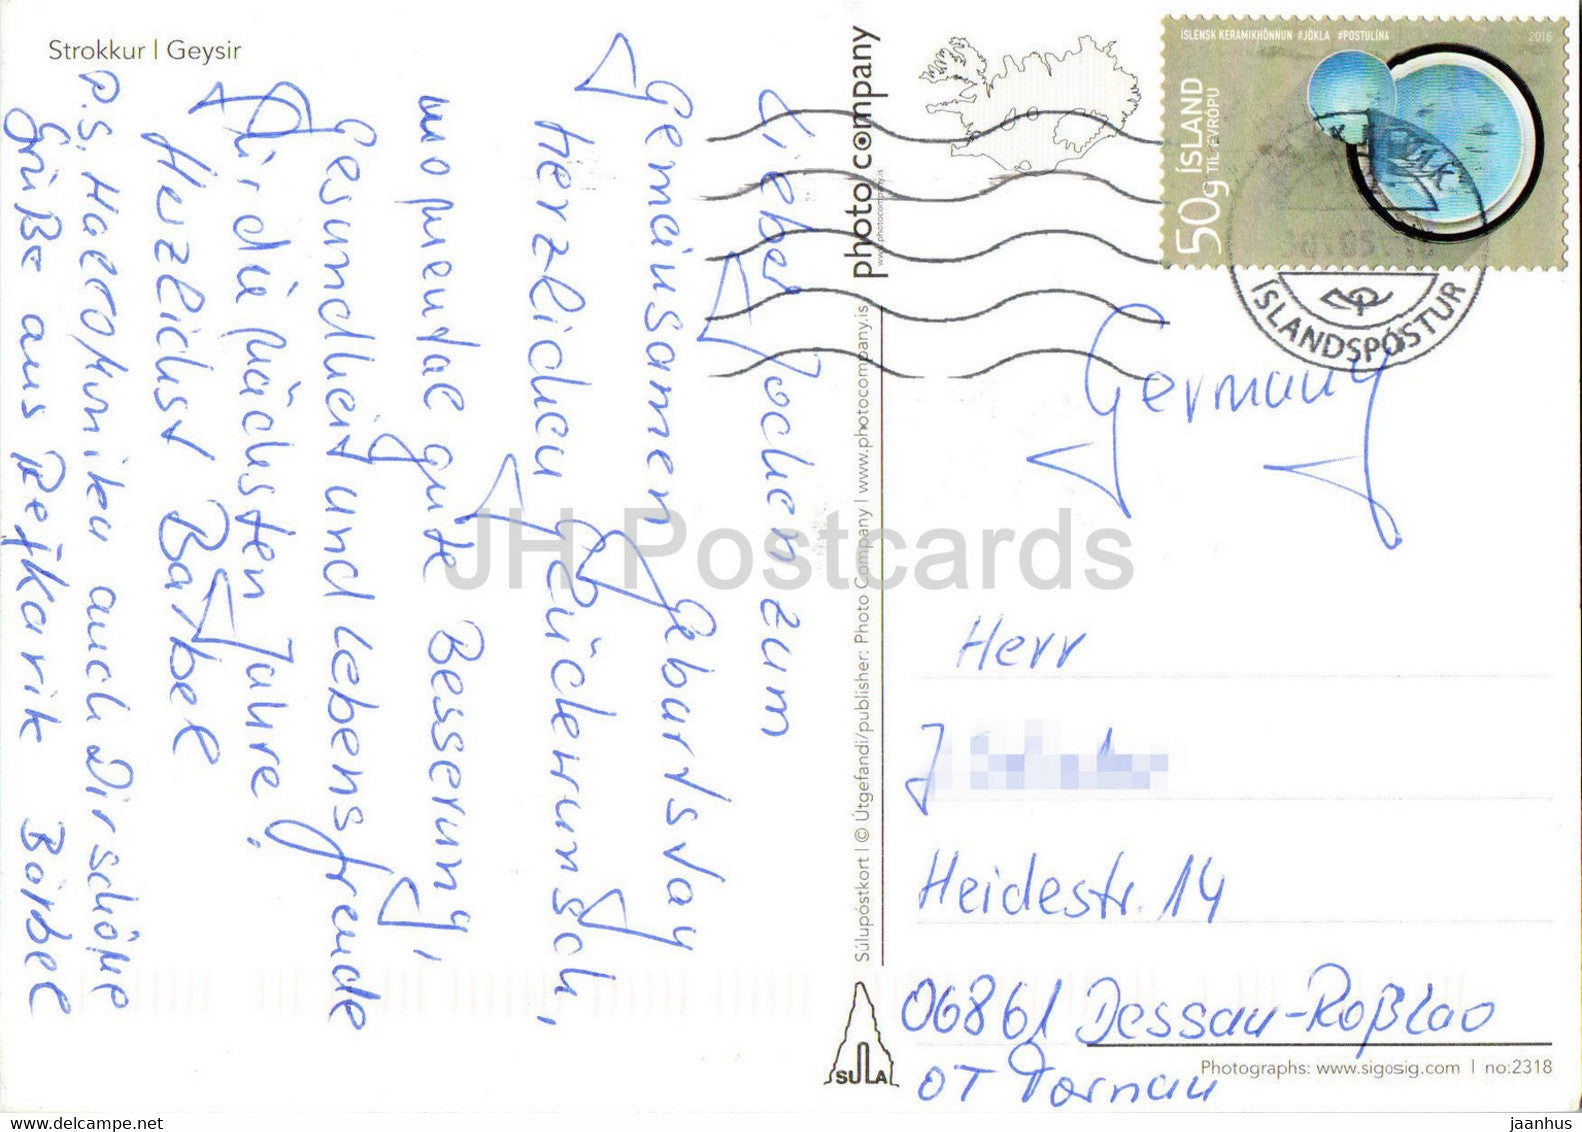 Strokkur | Geysir
Lieber Jochen zum
Gemeinsamen Geburtstag
Herzlichen Glückwunsch,
momental gute Besserung,
Gesundheit und Lebensfreude
für die nächsten Jahre!
Herzlichst Bärbel
P.S. Monika auch Dir schöne
Grüße aus Rejkavik Bärbel
photocompany
www.photocompany.is
Súlupóstkort | © Útgefandi/publisher: Photo Company | www.photocompany.is
SULA
ÍSLENSK KERAMIKHÖNNUN #JÖKLA #POSTULÍNA 2016
50g ÍSLAND
TIL EVRÓPU
ÍSLANDSPÓSTUR
Germany
Herr
J
Heidestr. 14
06861 Dessau-Roßlau
OT Tornau
Photographs: www.sigosig.com | no:2318
JH Postcards
www.delcampe.net
jaanhus